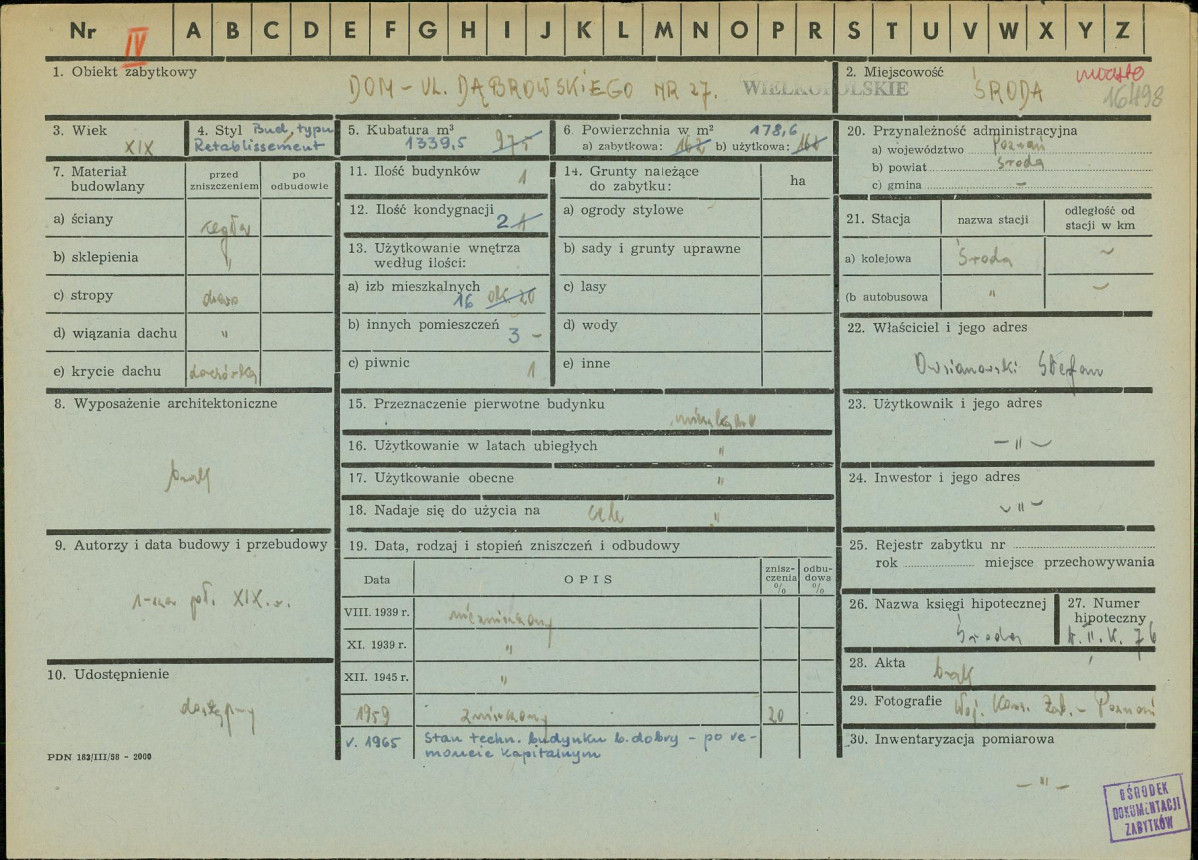 Nr IV A B C D E F G H I J K L M N O P R S T U V W X Y Z
1. Obiekt zabytkowy
DOM - UL. DĄBROWSKIEGO NR 27.
WIELKOPOLSKIE
2. Miejscowość
ŚRODA
miasto
16498
3. Wiek
XIX
4. Styl Bud. typu
Retablissement
5. Kubatura m³
1339,5 975
6. Powierzchnia w m² 178,6
a) zabytkowa: 162 b) użytkowa: 162
7. Materiał
budowlany
przed
zniszczeniem
po
odbudowie
a) ściany cegła
b) sklepienia "
c) stropy drewno
d) wiązania dachu "
e) krycie dachu dachówka
8. Wyposażenie architektoniczne
brak
9. Autorzy i data budowy i przebudowy
1-sza poł. XIX.w.
10. Udostępnienie
dostępny
PDN 163/III/58 - 2000
11. Ilość budynków 1
12. Ilość kondygnacji 2 1
13. Użytkowanie wnętrza
według ilości:
a) izb mieszkalnych
16 ok. 20
b) innych pomieszczeń
3 -
c) piwnic 1
14. Grunty należące
do zabytku:
ha
a) ogrody stylowe
b) sady i grunty uprawne
c) lasy
d) wody
e) inne
15. Przeznaczenie pierwotne budynku
mieszkalne
16. Użytkowanie w latach ubiegłych "
17. Użytkowanie obecne "
18. Nadaje się do użycia na cele "
19. Data, rodzaj i stopień zniszczeń i odbudowy
Data
OPIS
znisz-
czenia
%
odbu-
dowa
%
VIII. 1939 r. niezniszczony
XI. 1939 r. "
XII. 1945 r. "
1959 zniszczony 20
v. 1965 Stan techn. budynku b. dobry - po re-
moncie kapitalnym
20. Przynależność administracyjna
a) województwo Poznań
b) powiat Środa
c) gmina -
21. Stacja
nazwa stacji
odległość od
stacji w km
a) kolejowa Środa -
(b autobusowa " -
22. Właściciel i jego adres
Owsianowski Stefan
23. Użytkownik i jego adres
- " -
24. Inwestor i jego adres
- " -
25. Rejestr zabytku nr
rok miejsce przechowywania
26. Nazwa księgi hipotecznej
Środa
27. Numer
hipoteczny
28. Akta brak
29. Fotografie Woj. Kons. Zab. - Poznań
30. Inwentaryzacja pomiarowa
- " -
OŚRODEK
DOKUMENTACJI
ZABYTKÓW